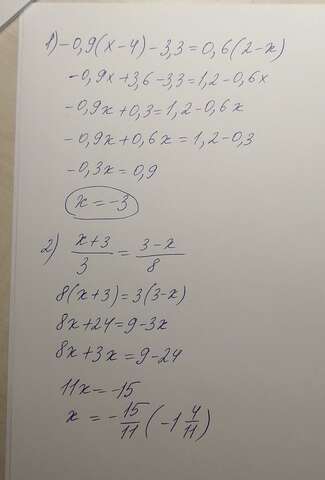 1) -0,9(x-4)-3,3=0,6(2-x)
-0,9x+3,6-3,3=1,2-0,6x
-0,9x+0,3=1,2-0,6x
-0,9x+0,6x=1,2-0,3
-0,3x=0,9
x=-3
2) (x+3)/3 = (3-x)/8
8(x+3)=3(3-x)
8x+24=9-3x
8x+3x=9-24
11x=-15
x=-15/11 (-1 4/11)